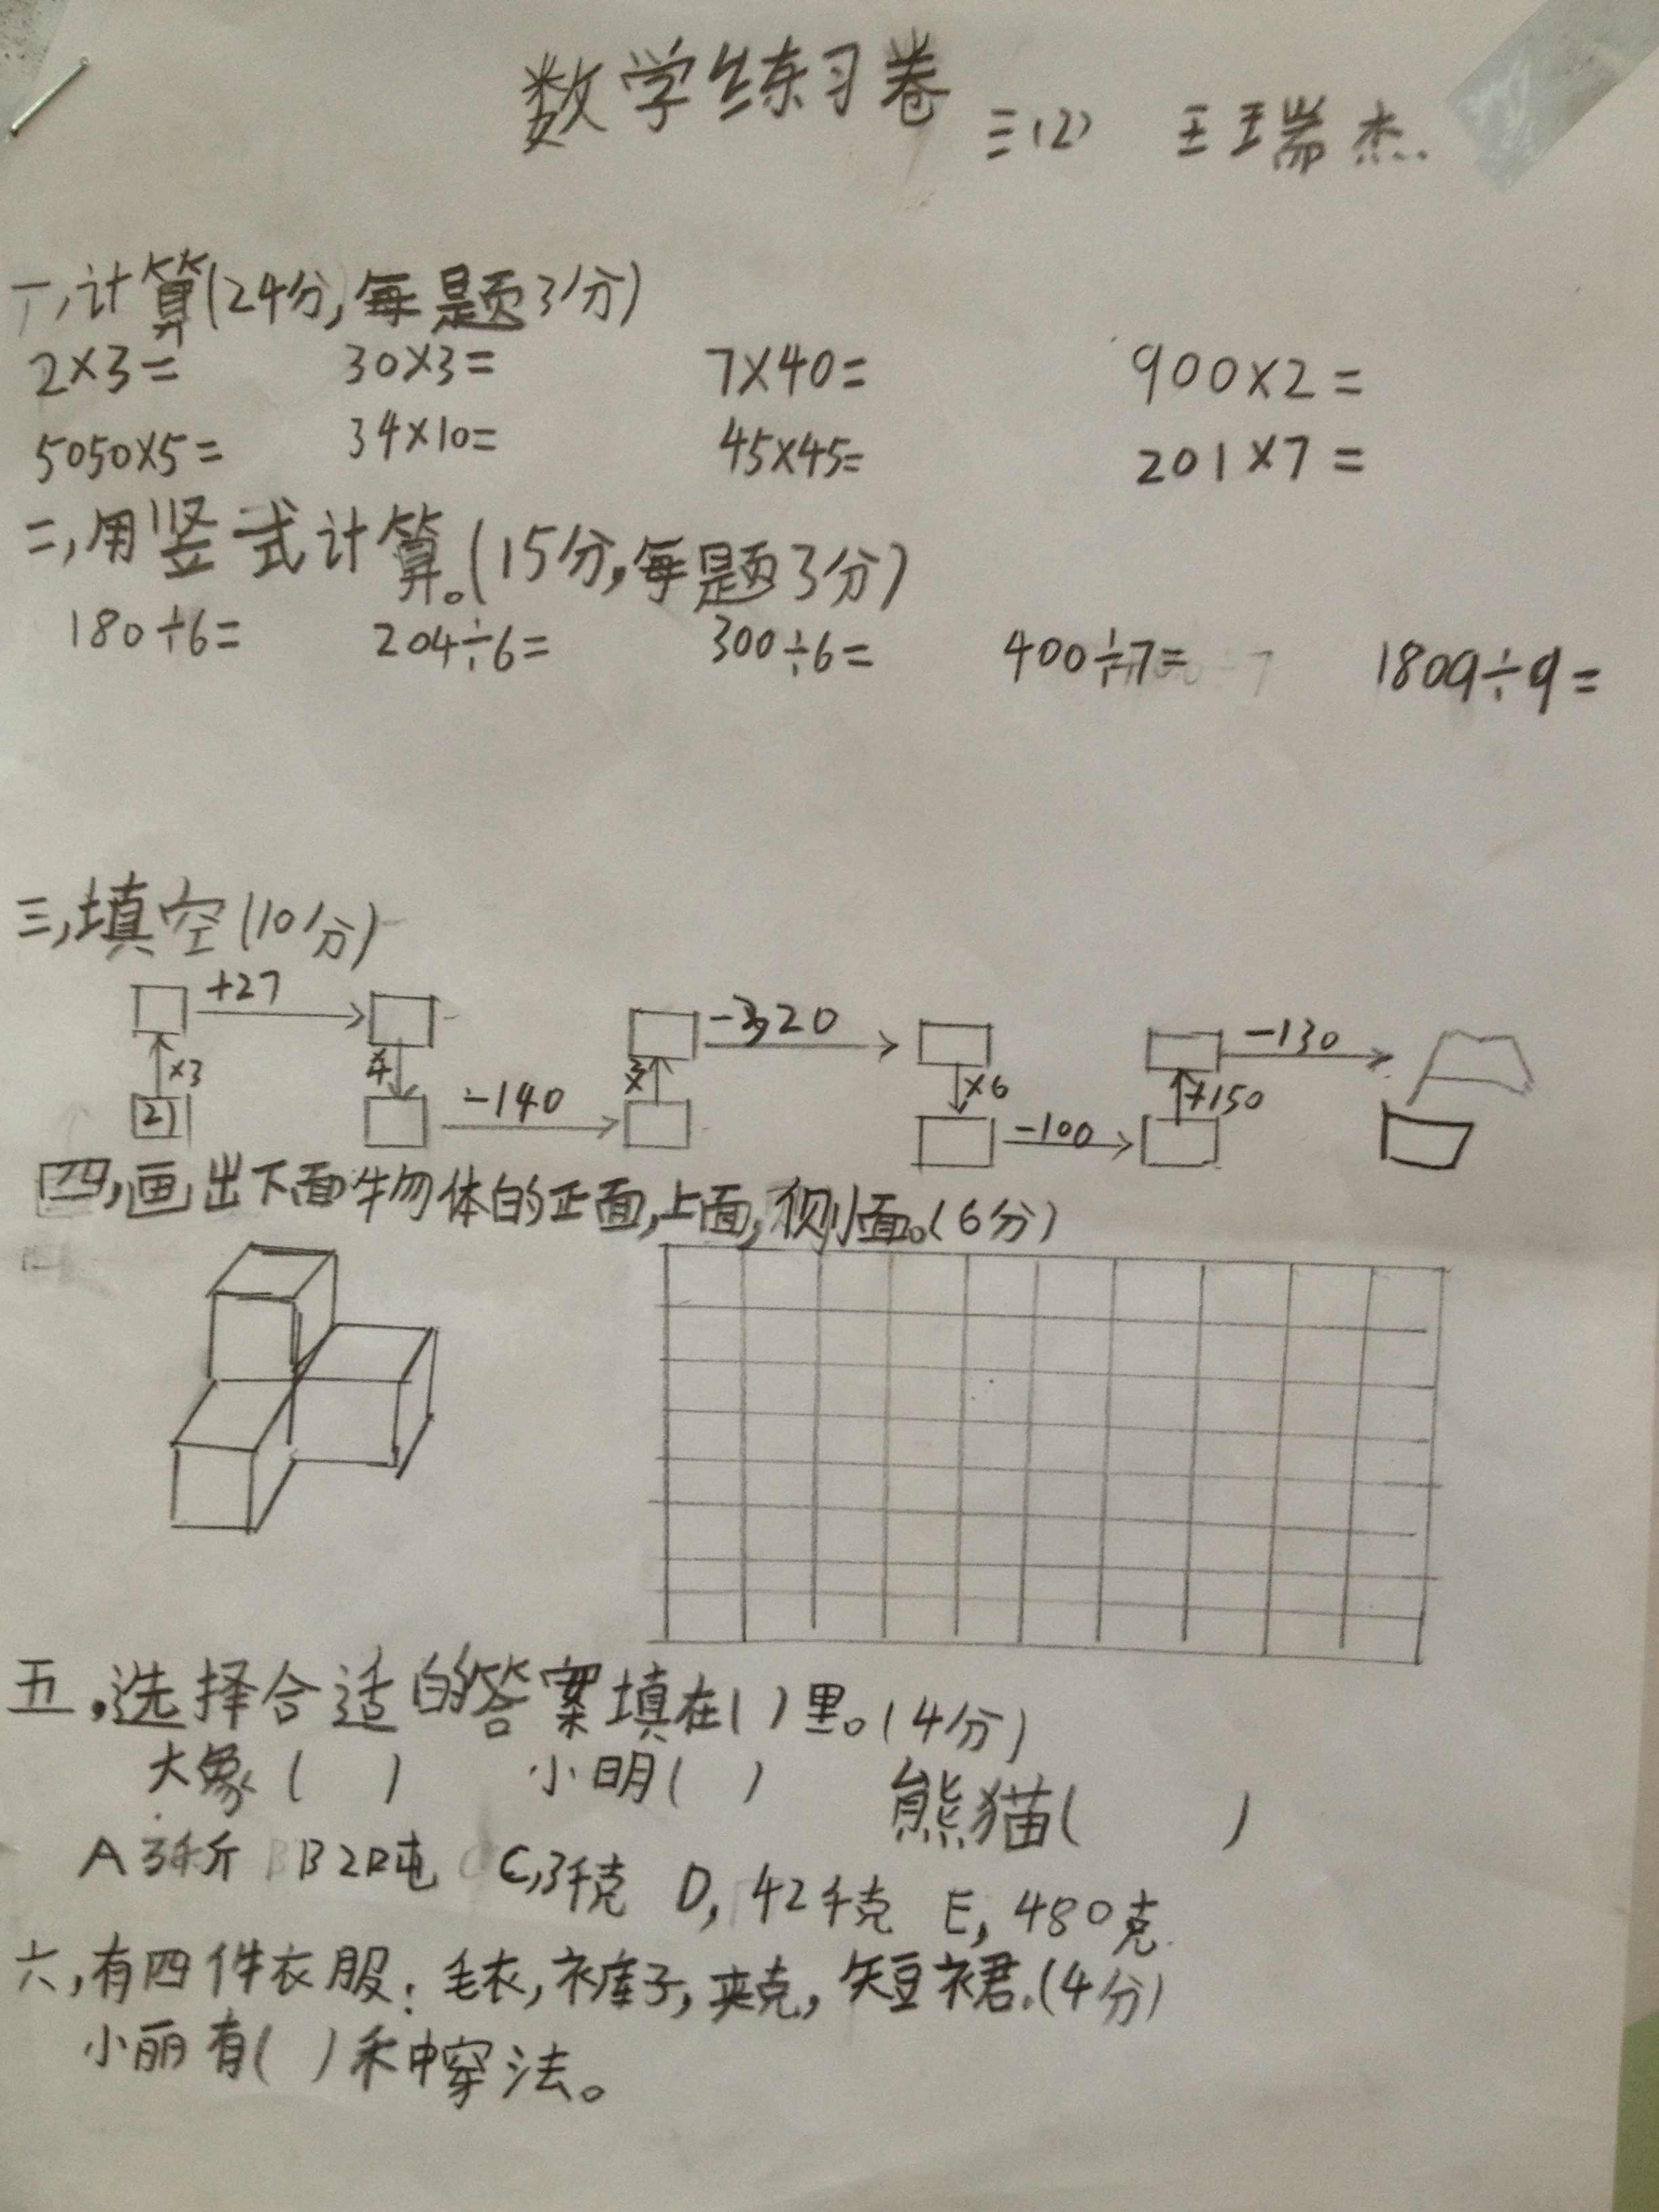 数学练习卷 三(2) 王瑞杰
一,计算(24分,每题3分)
2×3= 30×3= 7×40= 900×2=
5050×5= 34×10= 45×45= 201×7=
二,用竖式计算。(15分,每题3分)
180÷6= 204÷6= 300÷6= 400÷7= 1809÷9=
三,填空(10分)
+27 -320 -130
×3 ×4 ×3 ×6 +150
21 -140 -100
四,画出下面物体的正面,上面,侧面。(6分)
五.选择合适的答案填在( )里。(4分)
大象( ) 小明( ) 熊猫( )
A 3千斤 B 2吨 C,3千克 D,42千克 E,480克
六,有四件衣服:毛衣,裤子,夹克,短裙.(4分)
小丽有( )种穿法。